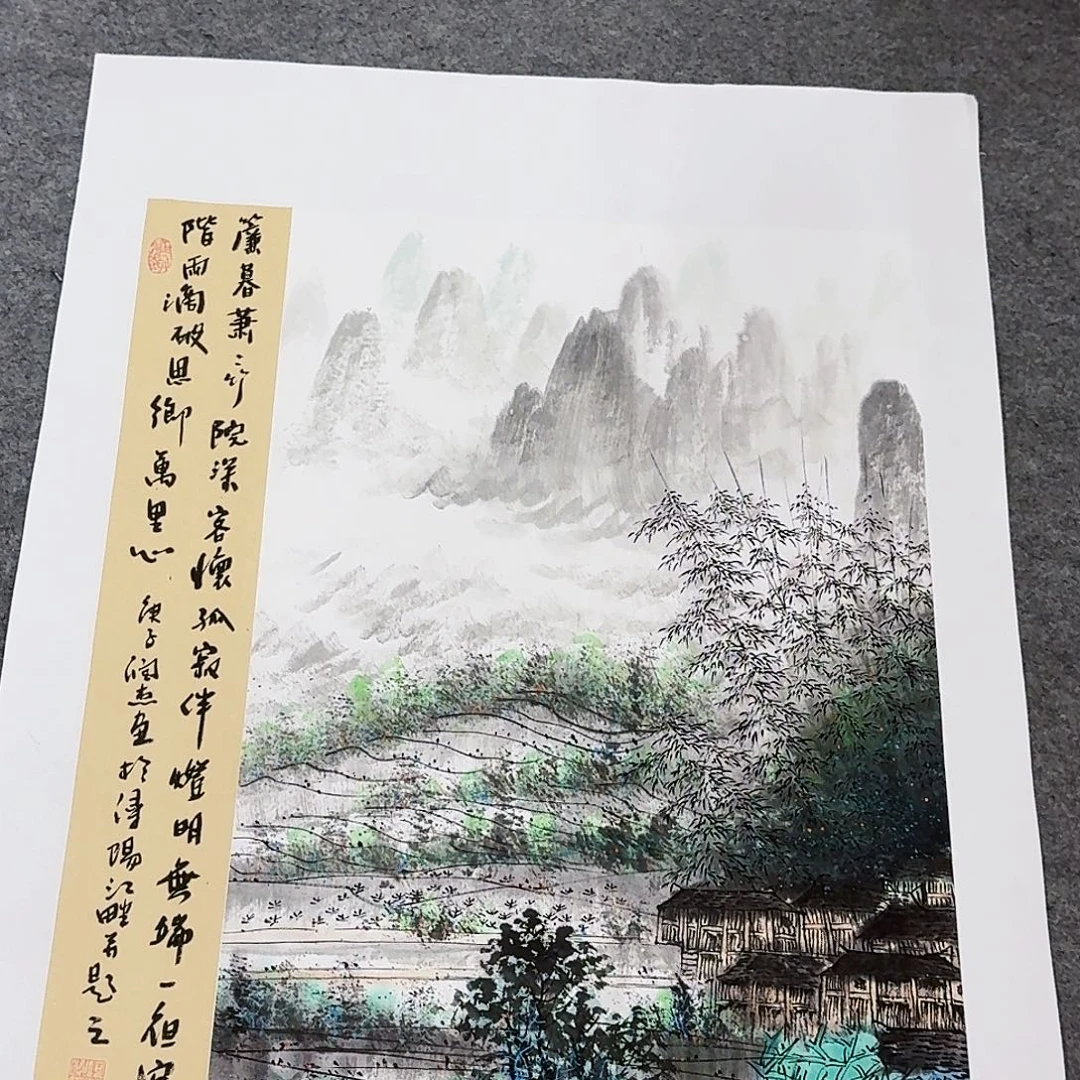 簾暮蕭〻竹院深客懷孤寂伴燈明無端一夜
階雨滴破思鄉萬里心 庚子潤杰畫於潯陽江畔并題之